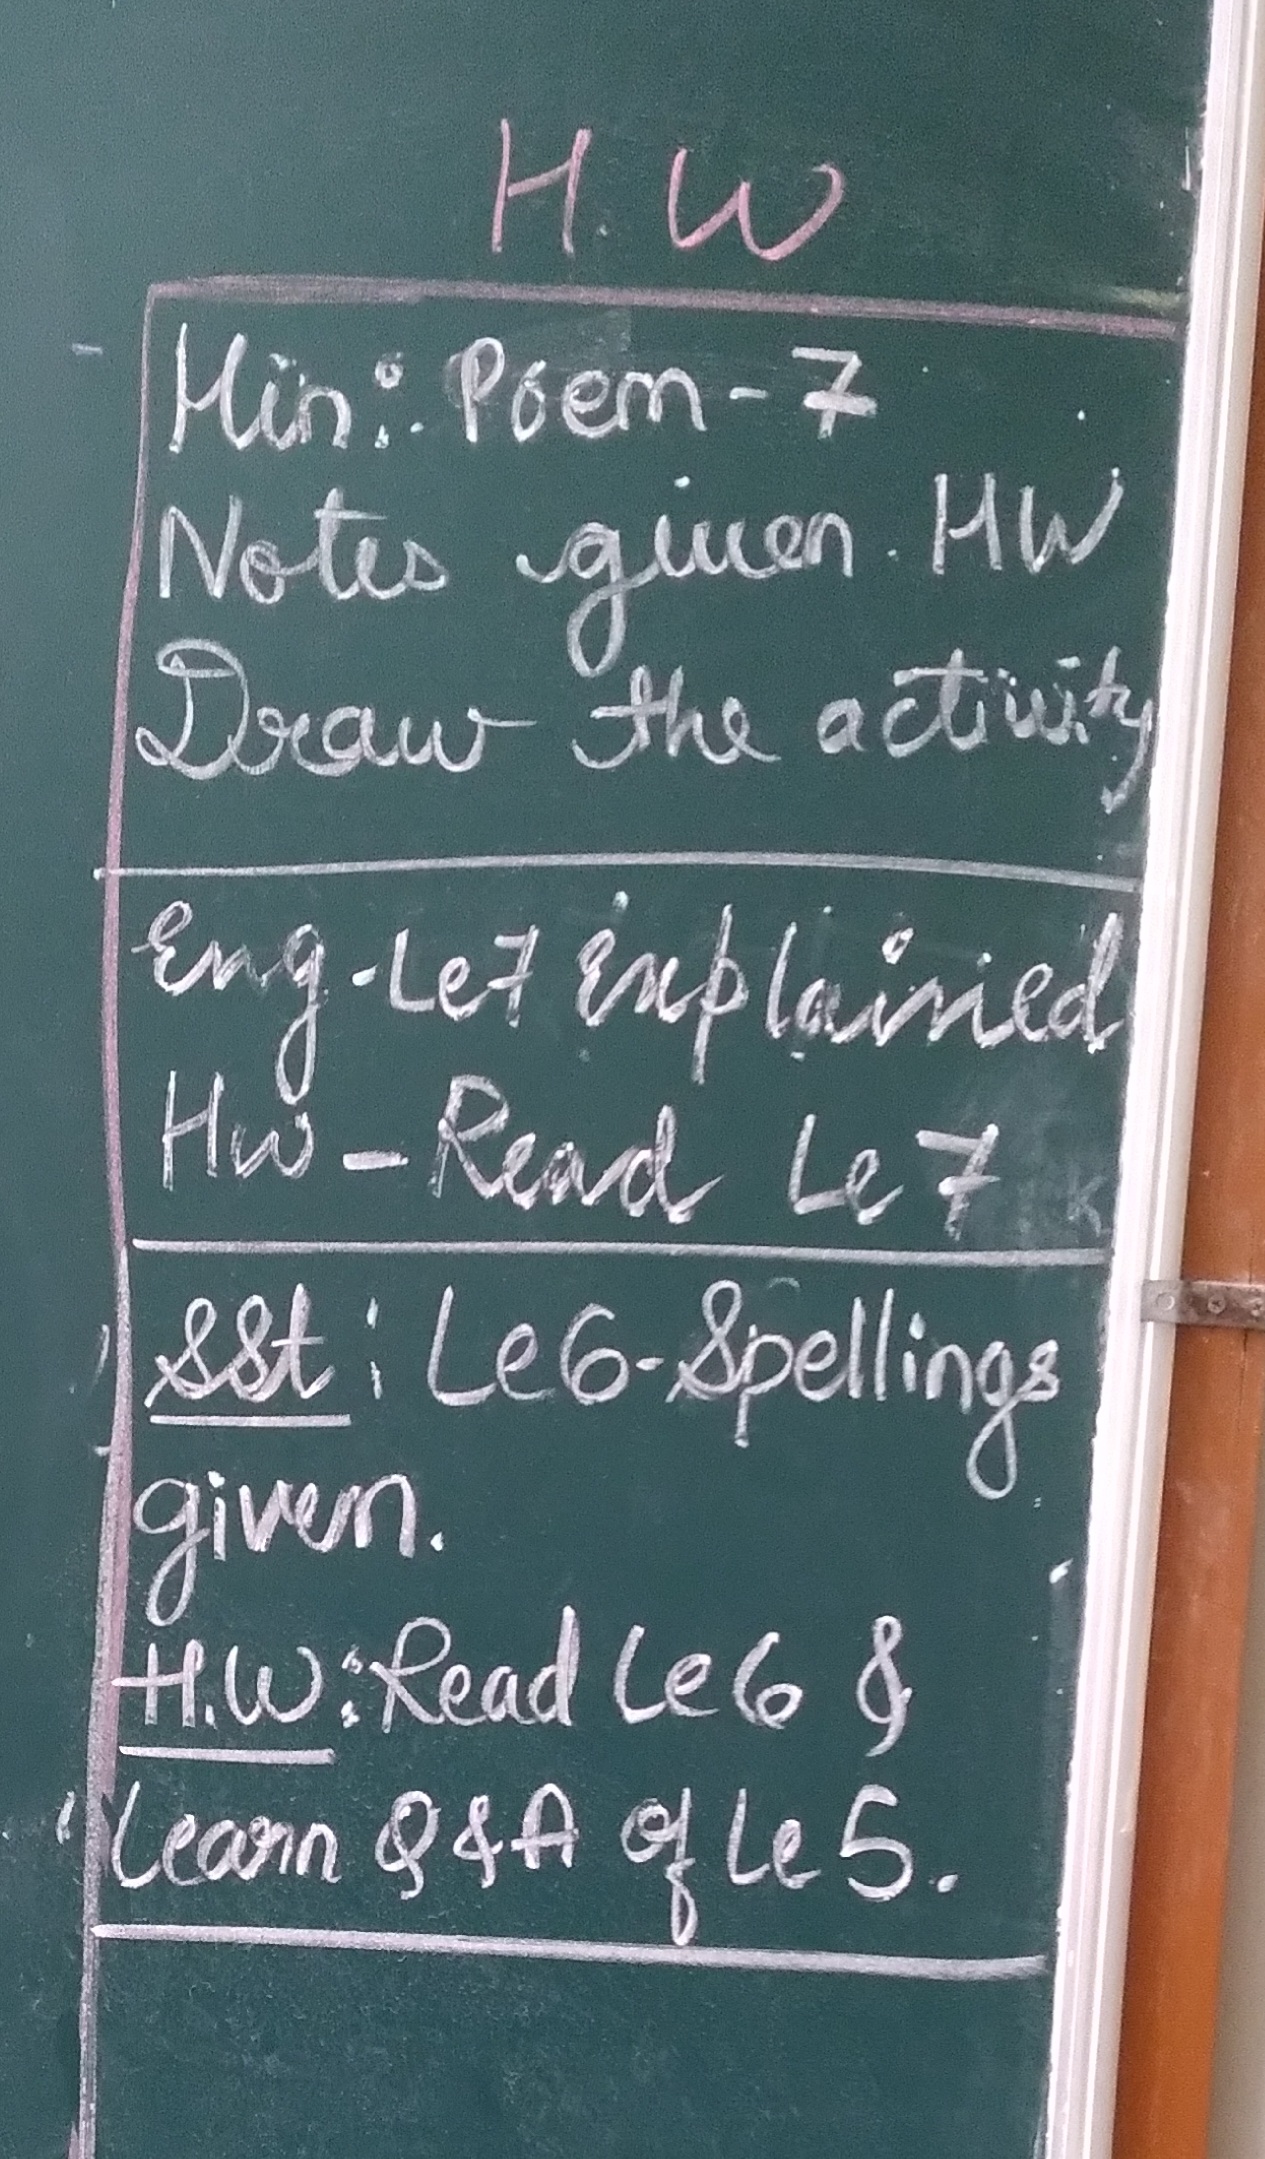 H.W
Hin: Poem-7
Notes given. HW
Draw the activity
Eng-Le7 Explained
Hw-Read Le 7
SSt: Le6-Spellings
given.
H.W: Read Le6 &
Learn Q&A of Le 5.